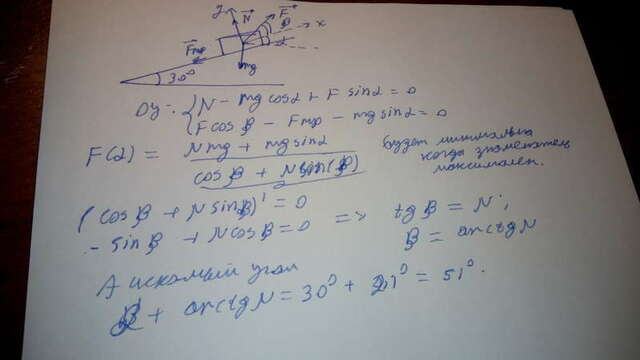 y N F x
β
α
Fтр
mg
30°
Oy: { N - mg cosα + F sinα = 0
F cosβ - Fтр - mg sinα = 0
F(α) = Nmg + mg sinα / cosβ + N sin(β) будет минимальна
когда знаменатель
максимален.
(cosβ + N sinβ)' = 0
- sinβ + N cosβ = 0 => tgβ = N;
β = arctg N
А искомый угол
α + arctg N = 30° + 21° = 51°.